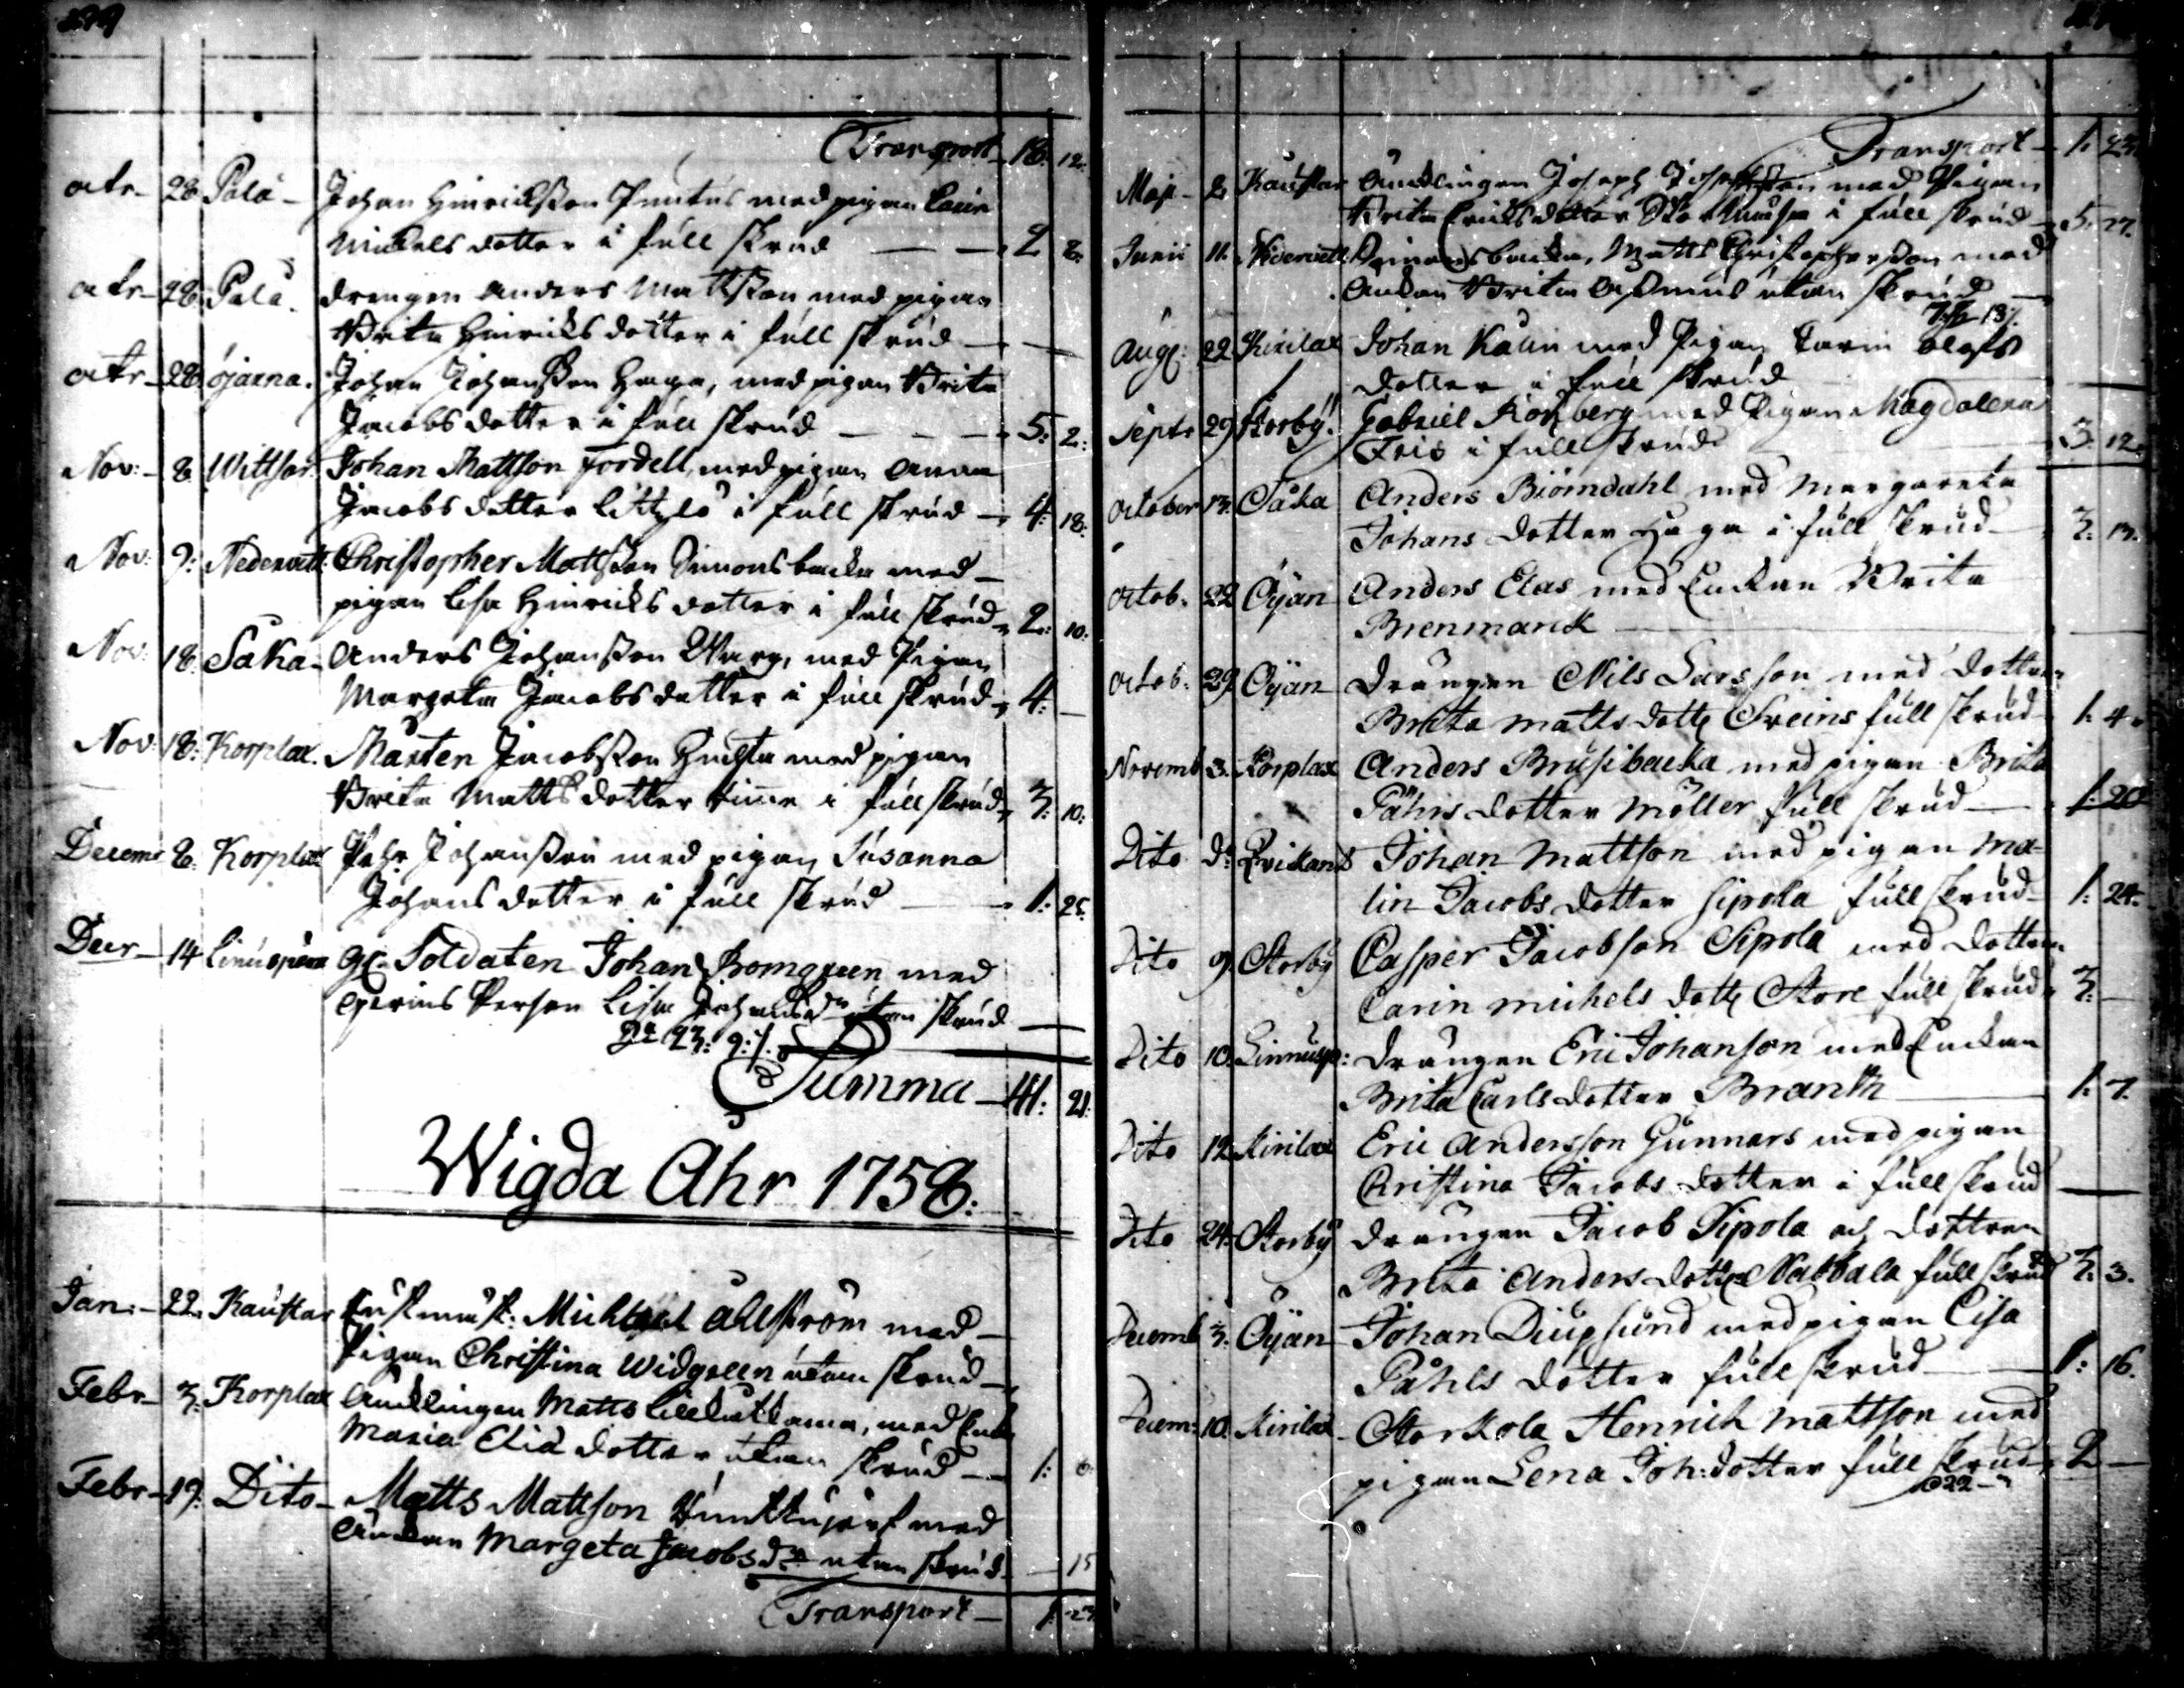 Transport 16. 12.
octr. 28. Palå Johan Hinrichsson Puntus med pigan Carin
Michels dotter i full skrud 2 8.
octr. 28. Palå. drengen Anders Mattsson med pigan
Brita Hinrichs dotter i full skrud
octr. 28 öjarna. Johan Johansson Haga, med pigan Brita
Jacobs dotter i full skrud 5: 2:
Nov: 8. Wittsar. Johan Mattson fordell, med pigan Anna
Jacobs dotter i full skrud 4: 18:
Nov: 9: Nedervett. Christopher Mattsson Simonsbacka med
pigan Lisa Hinrichs dotter i full skrud 2: 10:
Nov: 18. Såka Anders Johansson Warg, med Pigan
Margeta Jacobs dotter i full skrud 4:
Nov: 18: Korplax. Mårten Jacobsson med pigan
Brita Matts dotter i full skrud 3: 10:
Decemr 8. Korplax Pehr Johansson med pigan Susanna
Johans dotter i full skrud 1: 25.
Decr 14 Soldaten Johan Bomgreen med
Person Lisa utan skrud
Summa 41: 21:
Wigda Åhr 1758:
Jan: 22. Kaustar Michael Ahlström med
Pigan Christina Widgreen utan skrud
Febr 3: Korplax Änklingen Matts med
Maria Eliæ dotter utan skrud 1: 8.
Febr 19: Dito Matts Mattson med
Änkan Margeta Jacobs dr utan skrud 15
Transport 1: 23.
Transport 1. 23.
Maji 2. Kaustar Änklingen Joseph Josephsson med Pigan
Brita Erichs dotter i full skrud 5. 27.
Junii 11. Nedervett. Simonsbacka, Matts Christophersson med
Änkan Brita utan skrud
Aug: 22 Kirilax Johan Kalin med Pigan Carin Olofs
dotter i full skrud
Septr 29 Storby. Gabriel med Pigan Magdalena
Friis i full skrud 3. 12.
October 13. Såka Anders Biörndahl med Margareta
Johans dotter Haga i full skrud 3. 13.
octob. 22 Öijan Anders Elas med Enckan Brita
Brenmarck
octob. 29 Öijan drängen Nils Larsson med dottren
Brita Matts dotter Sveins full skrud 1. 4.
Novemb 3. Korplax Anders Brusibacka med pigan Brita
Påhls dotter Möller full skrud 1. 20
Dito do Johan Mattson med pigan Ma-
lin Jacobs dotter Sipola full skrud 1. 24.
Dito 9. Storby Casper Jacobson Sipola med dottren
Carin michels dotter Store full skrud 3.
Dito 10. Linnusp: drängen Eric Johanson med Enckan
Brita Carls dotter Branth 1. 7.
Dito 12 Kirilax Eric Andersson Gunnars med pigan
Christina Jacobs dotter i full skrud
Dito 24. Storby drängen Jacob Sipola och dottren
Brita Anders dotter Nabbala full skrud 3. 3.
Decemb 3. Öijan Johan Diupsund med pigan Lisa
Påhls dotter full skrud 1: 16.
Decem: 10. Kirilax Storkola Henrich Mattson med
pigan Lena Joh: dotter full skrud 2